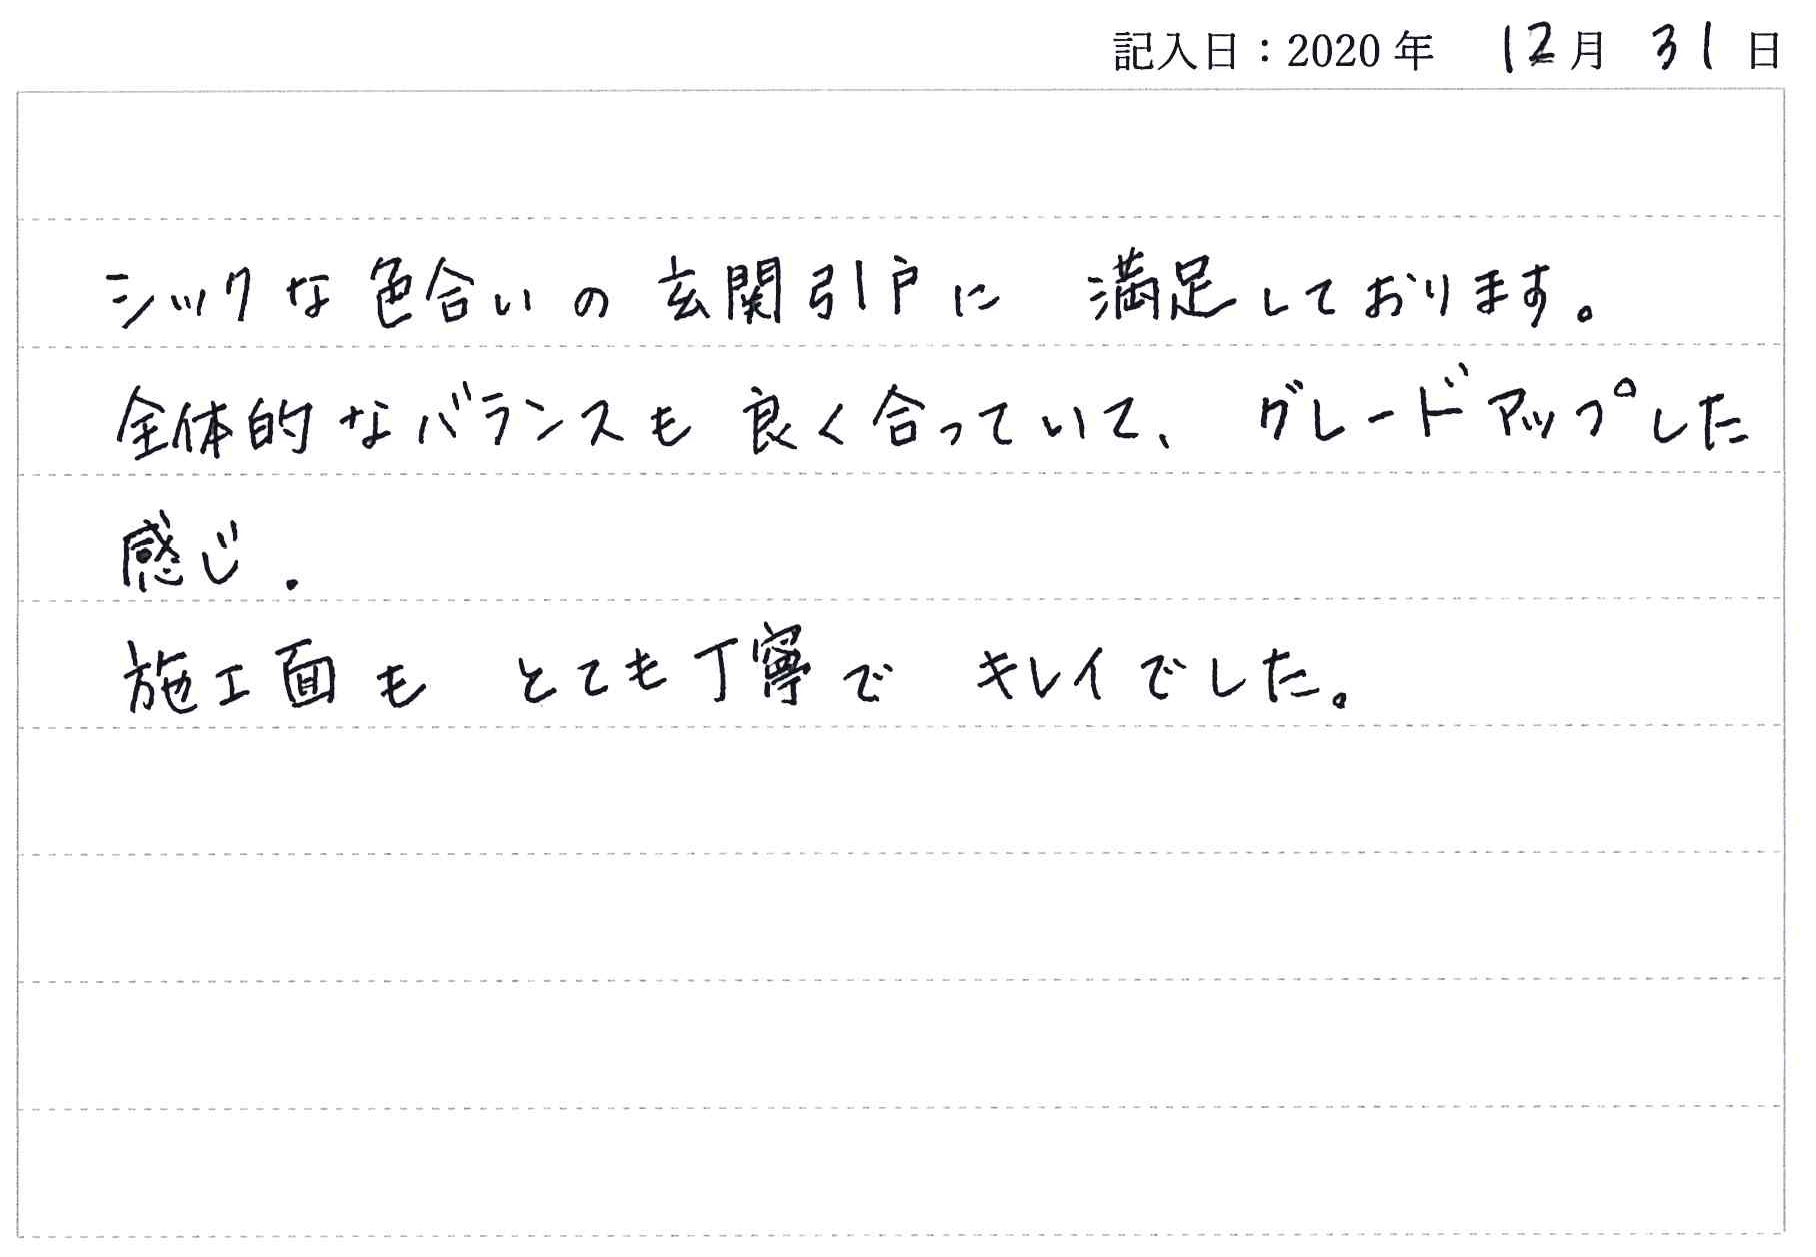 記入日：2020年 12月 31日
シックな色合いの玄関引戸に 満足しております。
全体的なバランスも良く合っていて、グレードアップした
感じ.
施工面も とても丁寧で キレイでした。